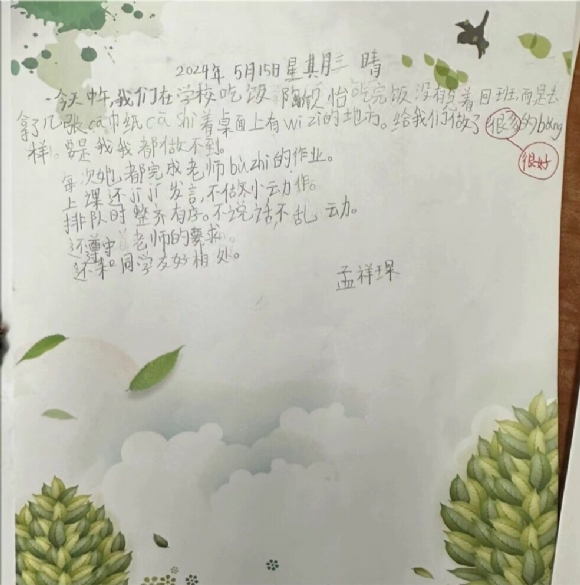 2024年 5月15日 星期三 晴
今天中午,我们在学校吃饭 陈欣怡吃完饭 没有急着回班,而是去
拿了几张cā巾纸cā shì着桌面上有wū zì的地方。给我们做了很多的bǎng
样。要是我我都做不到。
很好
每次她都完成老师bù zhì的作业。
上课还jī jí发言,不做小动作。
排队时整齐有序。不说话不乱动。
还尊守老师的要求。
还和同学友好相处。
孟祥琪